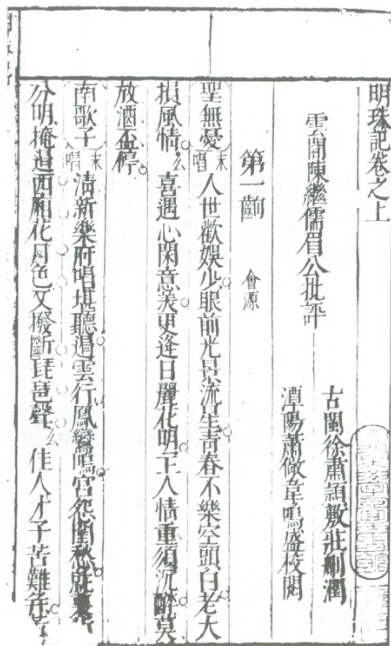 明珠記卷之上
雲間陳繼儒眉公批評
古閩徐肅頴敷莊刪潤
潭陽蕭儆韋鳴盛校閱
第一齣 會源
聖無憂 末唱 人世歡娛少眼前光景流星青春不樂空頭白老大
損風情 么 喜遇心閑意美更逢日麗花明主人情重須沉醉莫
放酒盃停
南歌子 末唱 清新樂府唱堪聽遏雲行鳳鸞鳴宮怨閨愁
分明掩過西廂花月色又撥斷琵琶聲 么 佳人才子苦難